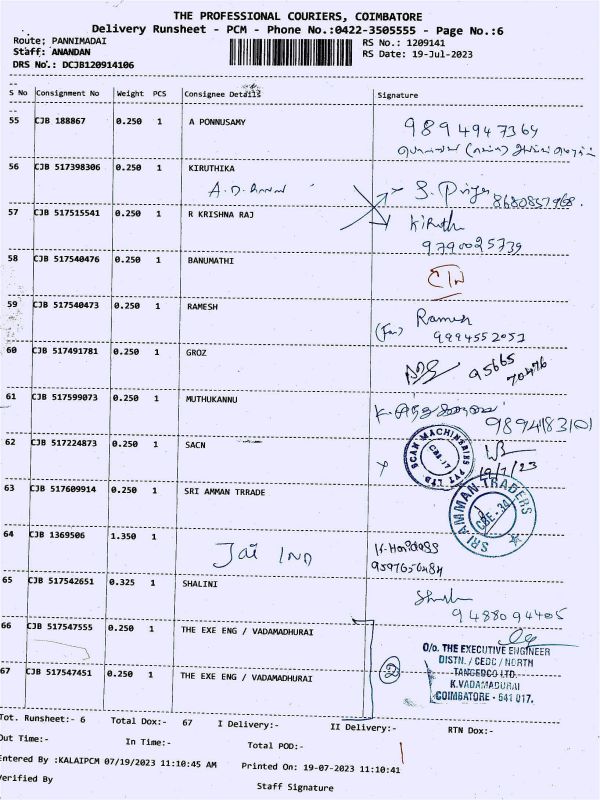 THE PROFESSIONAL COURIERS, COIMBATORE
Delivery Runsheet - PCM - Phone No.:0422-3505555 - Page No.:6
Route; PANNIMADAI RS No.: 1209141
Staff: ANANDAN RS Date: 19-Jul-2023
DRS No.: DCJB120914106
S No Consignment No Weight PCS Consignee Details Signature
55 CJB 188867 0.250 1 A PONNUSAMY 9894947364
56 CJB 517398306 0.250 1 KIRUTHIKA
8680857968.
57 CJB 517515541 0.250 1 R KRISHNA RAJ Kiruth
9790025739
58 CJB 517540476 0.250 1 BANUMATHI
59 CJB 517540473 0.250 1 RAMESH Ramesh
9994552053
60 CJB 517491781 0.250 1 GROZ 95665
70476
61 CJB 517599073 0.250 1 MUTHUKANNU
9894183101
62 CJB 517224873 0.250 1 SACN SCAN MACHINERIES PVT LTD
CBE-17
19/7/23
63 CJB 517609914 0.250 1 SRI AMMAN TRRADE SRI AMMAN TRADERS
CBE-34
64 CJB 1369506 1.350 1 Jai IND
9597656484
65 CJB 517542651 0.325 1 SHALINI
9488094405
66 CJB 517547555 0.250 1 THE EXE ENG / VADAMADHURAI
O/o. THE EXECUTIVE ENGINEER
DISTN. / CEDC / NORTH
TANGEDCO LTD.
K.VADAMADURAI
COIMBATORE - 641 017.
67 CJB 517547451 0.250 1 THE EXE ENG / VADAMADHURAI 2
Tot. Runsheet:- 6 Total Dox:- 67 I Delivery:- II Delivery:- RTN Dox:-
Out Time:- In Time:- Total POD:-
Entered By :KALAIPCM 07/19/2023 11:10:45 AM Printed On: 19-07-2023 11:10:41
Verified By Staff Signature